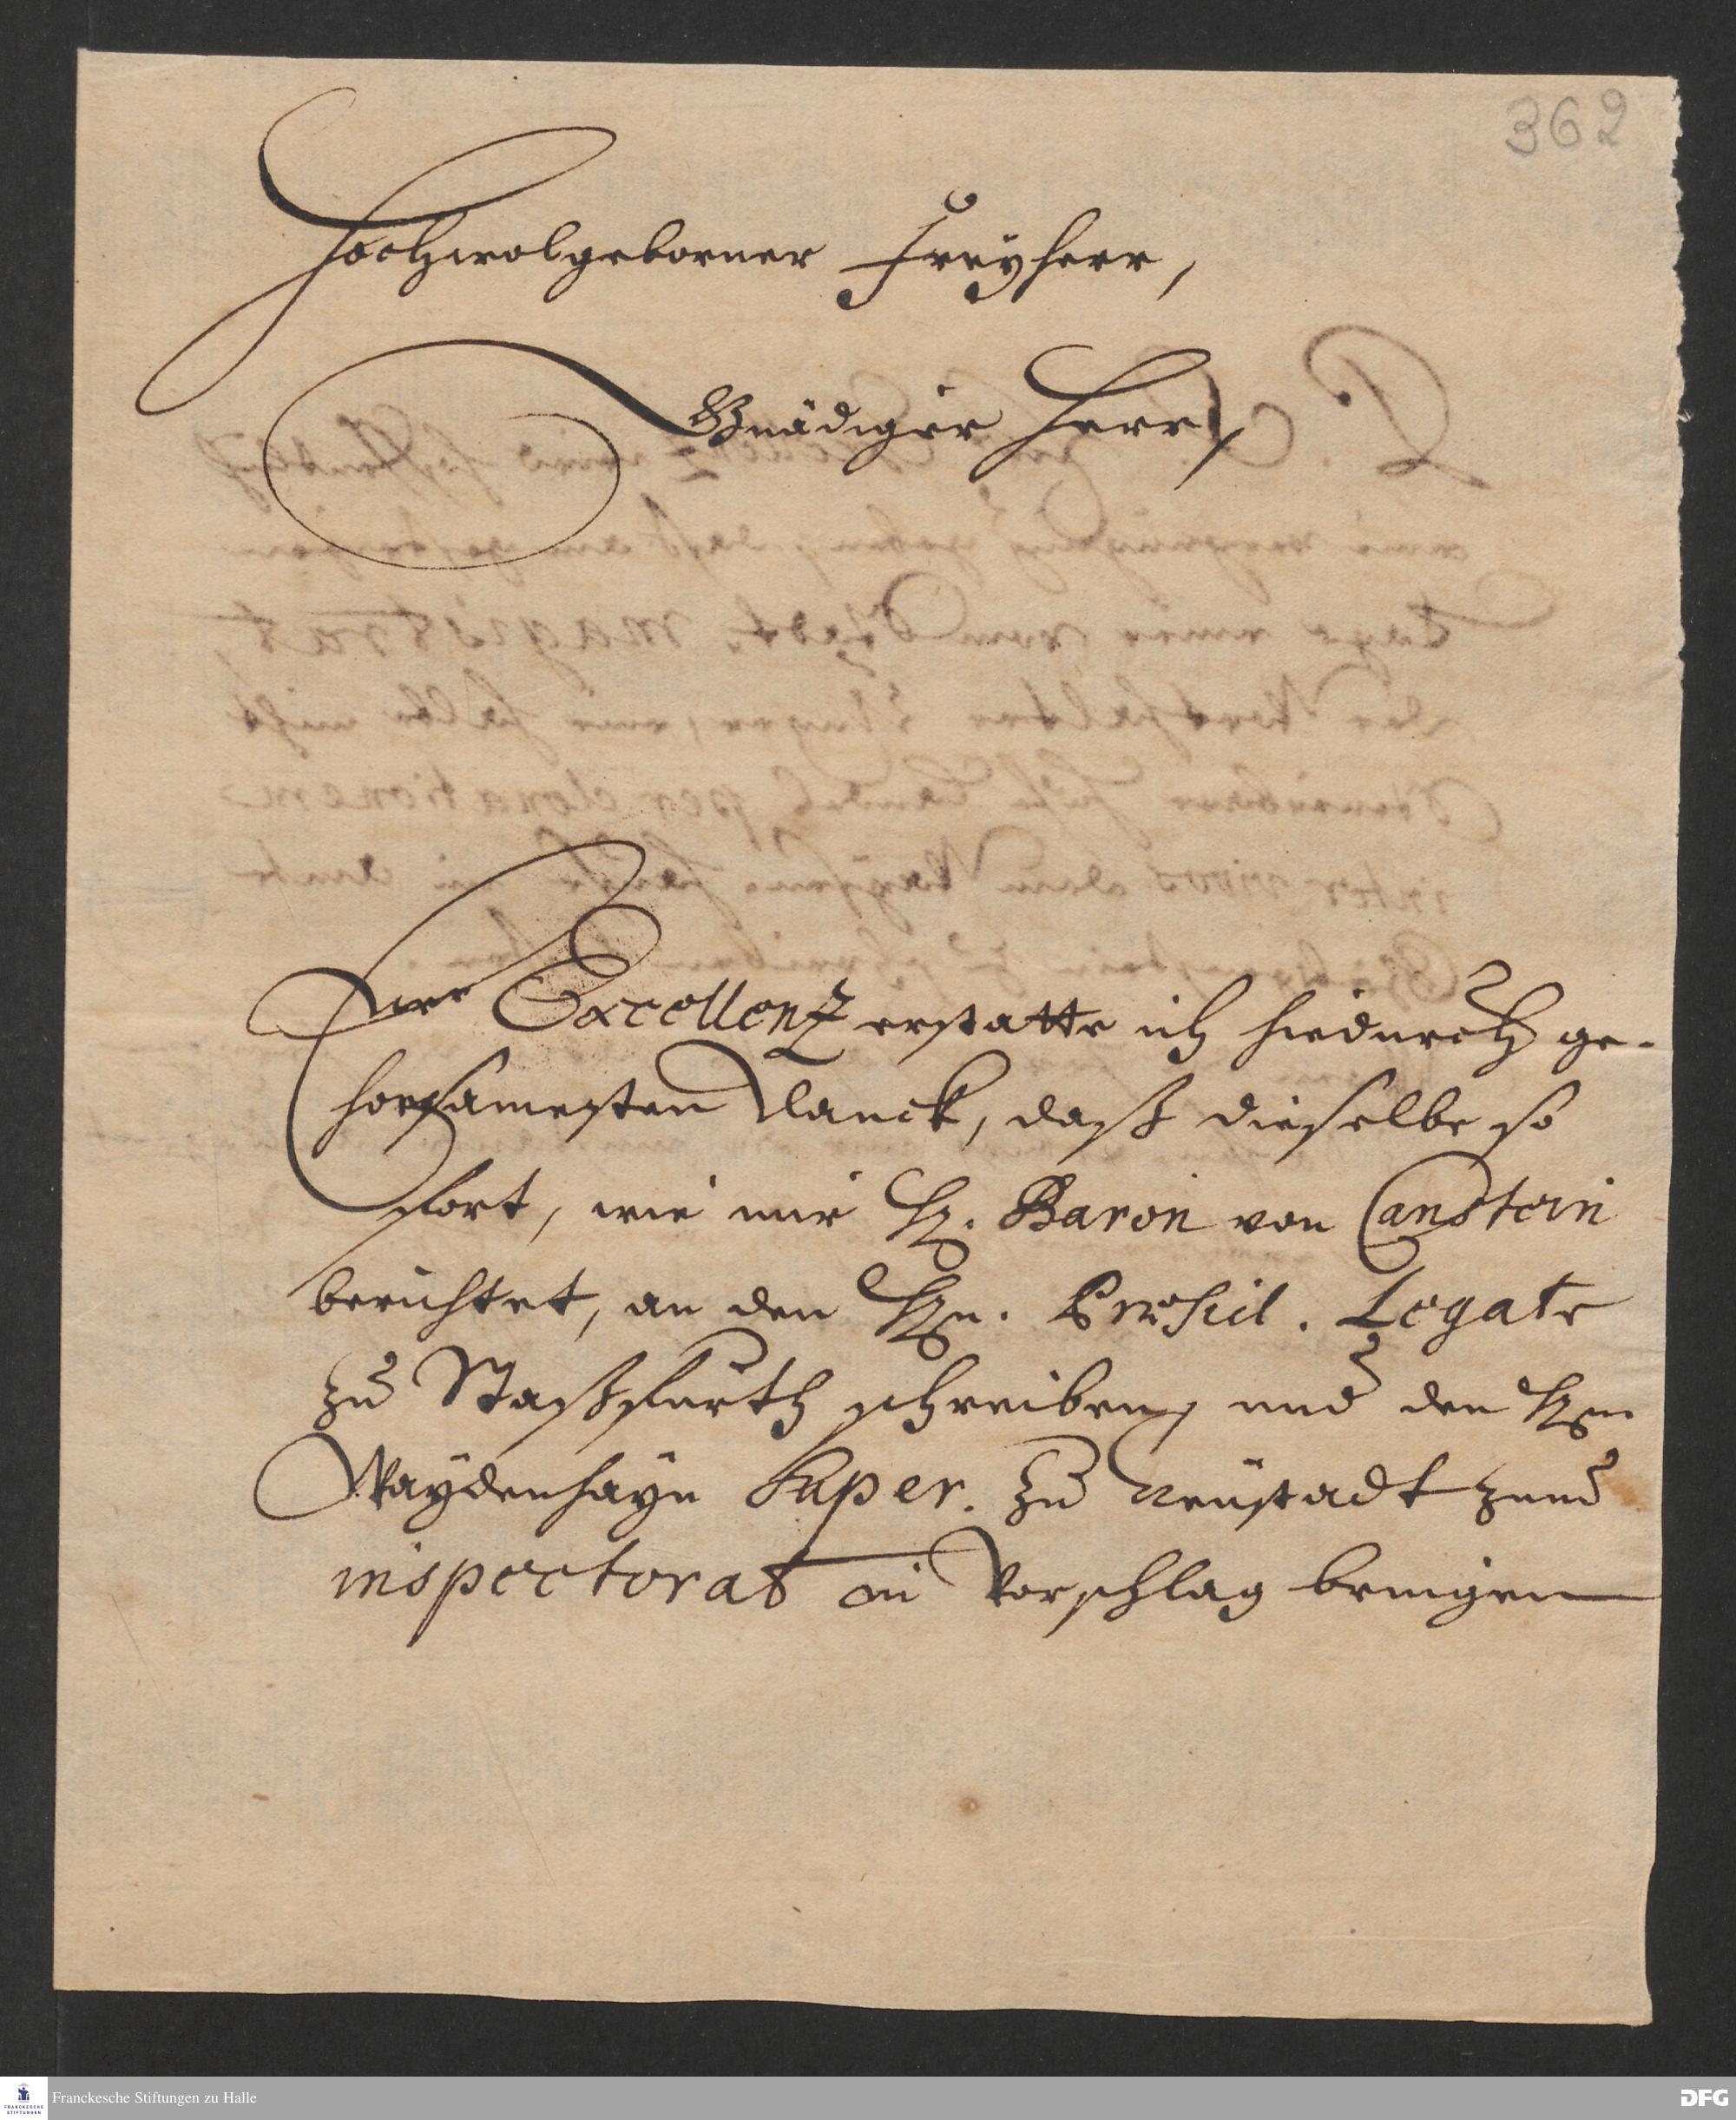 362
Hochwolgeborner Freyherr,
Gnädiger Herr,
Ewr Excellenz erstatte ich hiedurch ge-
horsamesten Danck, daß dieselbe so
fort, wie mir H. Baron von Canstein
berichtet, an den Hn. Legate
zu Staßfurth schreiben, und den Hn
Waydenhayn Super. zu Neustadt zum
inspectorat in Vorschlag bringen
Franckesche Stiftungen zu Halle
DFG